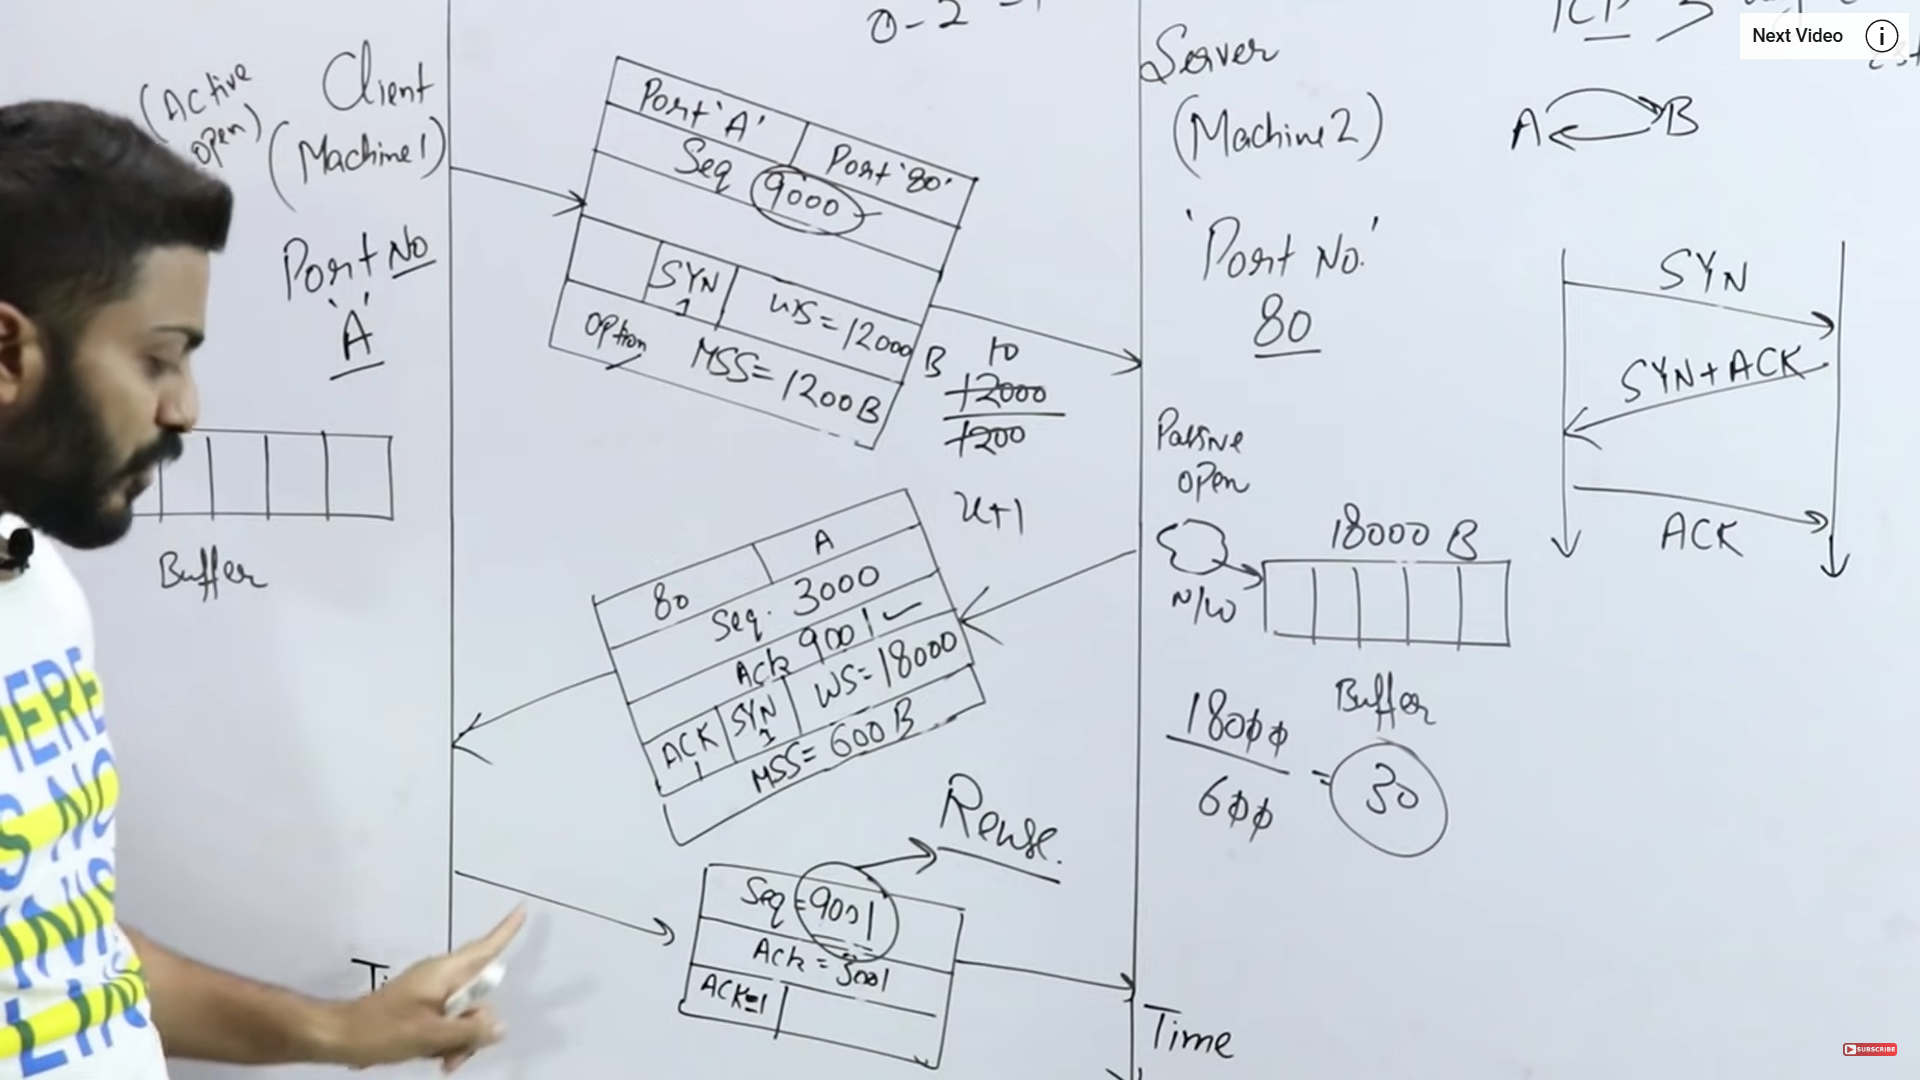 0-2
TCP 3
Next Video
(Active
open)
Client
(Machine 1)
Port No
'A'
Buffer
Port 'A'
Port '80'
Seq 9000
SYN
1
WS = 12000 B
option MSS = 1200 B
10
12000
1200
x+1
80
A
Seq. 3000
Ack 9001
ACK
1
SYN
1
WS = 18000
MSS = 600 B
Seq = 9001
Ack = 3001
ACK=1
Reuse.
Server
(Machine 2)
'Port No.'
80
Passive
open
N/W
18000 B
Buffer
18000
600
= 30
Time
A
B
SYN
SYN+ACK
ACK
HERE
IS NO
LIN
SUBSCRIBE